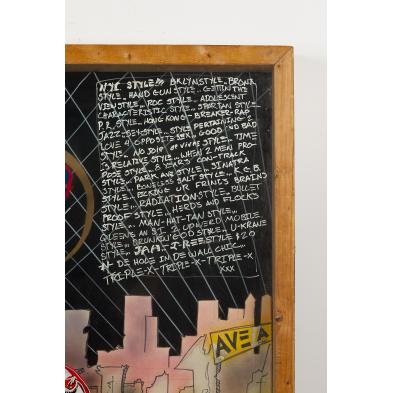 NYC STYLE BKLYN STYLE.. BRONX
STYLE.. HAND GUN STYLE.. GETTIN THE
VIEW STYLE.. ROC STYLE.. ADOLESCENT
CHARACTERISTIC STYLE... SPARTAN STYLE..
P.R. STYLE.. HONG KONG - BREAKER-RAP
JAZZ.. STYLE... STYLE PERTAINING 2
LOVE 4 OPPOSITE SEX.. GOOD 'N' BAD
STYLE.. NO JOB STYLE.. TIME
IS RELATIVE STYLE.. WHEN 2 MEN PRO-
POSE STYLE.. 8 YEARS CON-TRACK
STYLE.. PARK AVE STYLE.. SINATRA
STYLE.. BONELESS SALT STYLE.. K.G.B
STYLE.. PICKING UR BRAINS
STYLE.. RADIATION STYLE.. BULLET
PROOF STYLE.. HERDS AND FLOCKS
STYLE... MAN-HAT-TAN STYLE..
AN 3! 2 UPWERD MOBILE
STYLE.. DRUNKIN GOD STYLE.. U-KRANE
STYLE.. STYLE $20
N DE HOLE IN DE WALL CHIC...
TRIPLE-X-TRIPLE-X-TRIPLE-X
XXX
AVE A